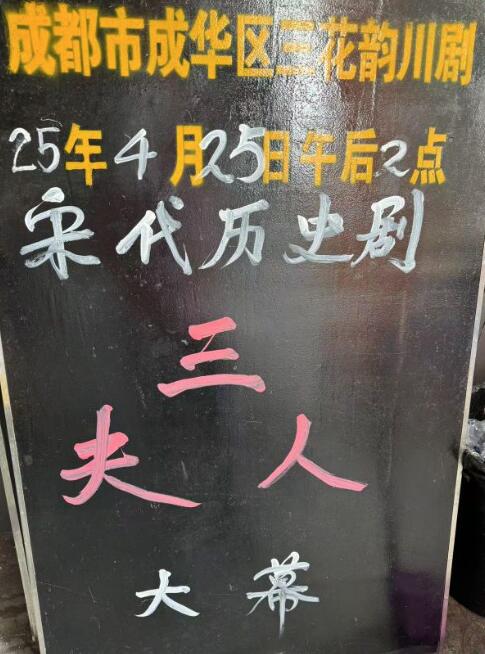 成都市成华区三花韵川剧
25年4月25日午后2点
宋代历史剧
三
夫人
大幕